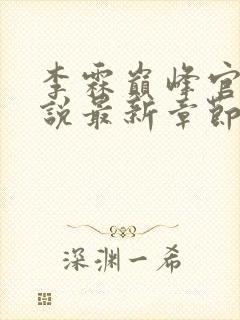 李霖巔峰官
說最新章節
深渊一希